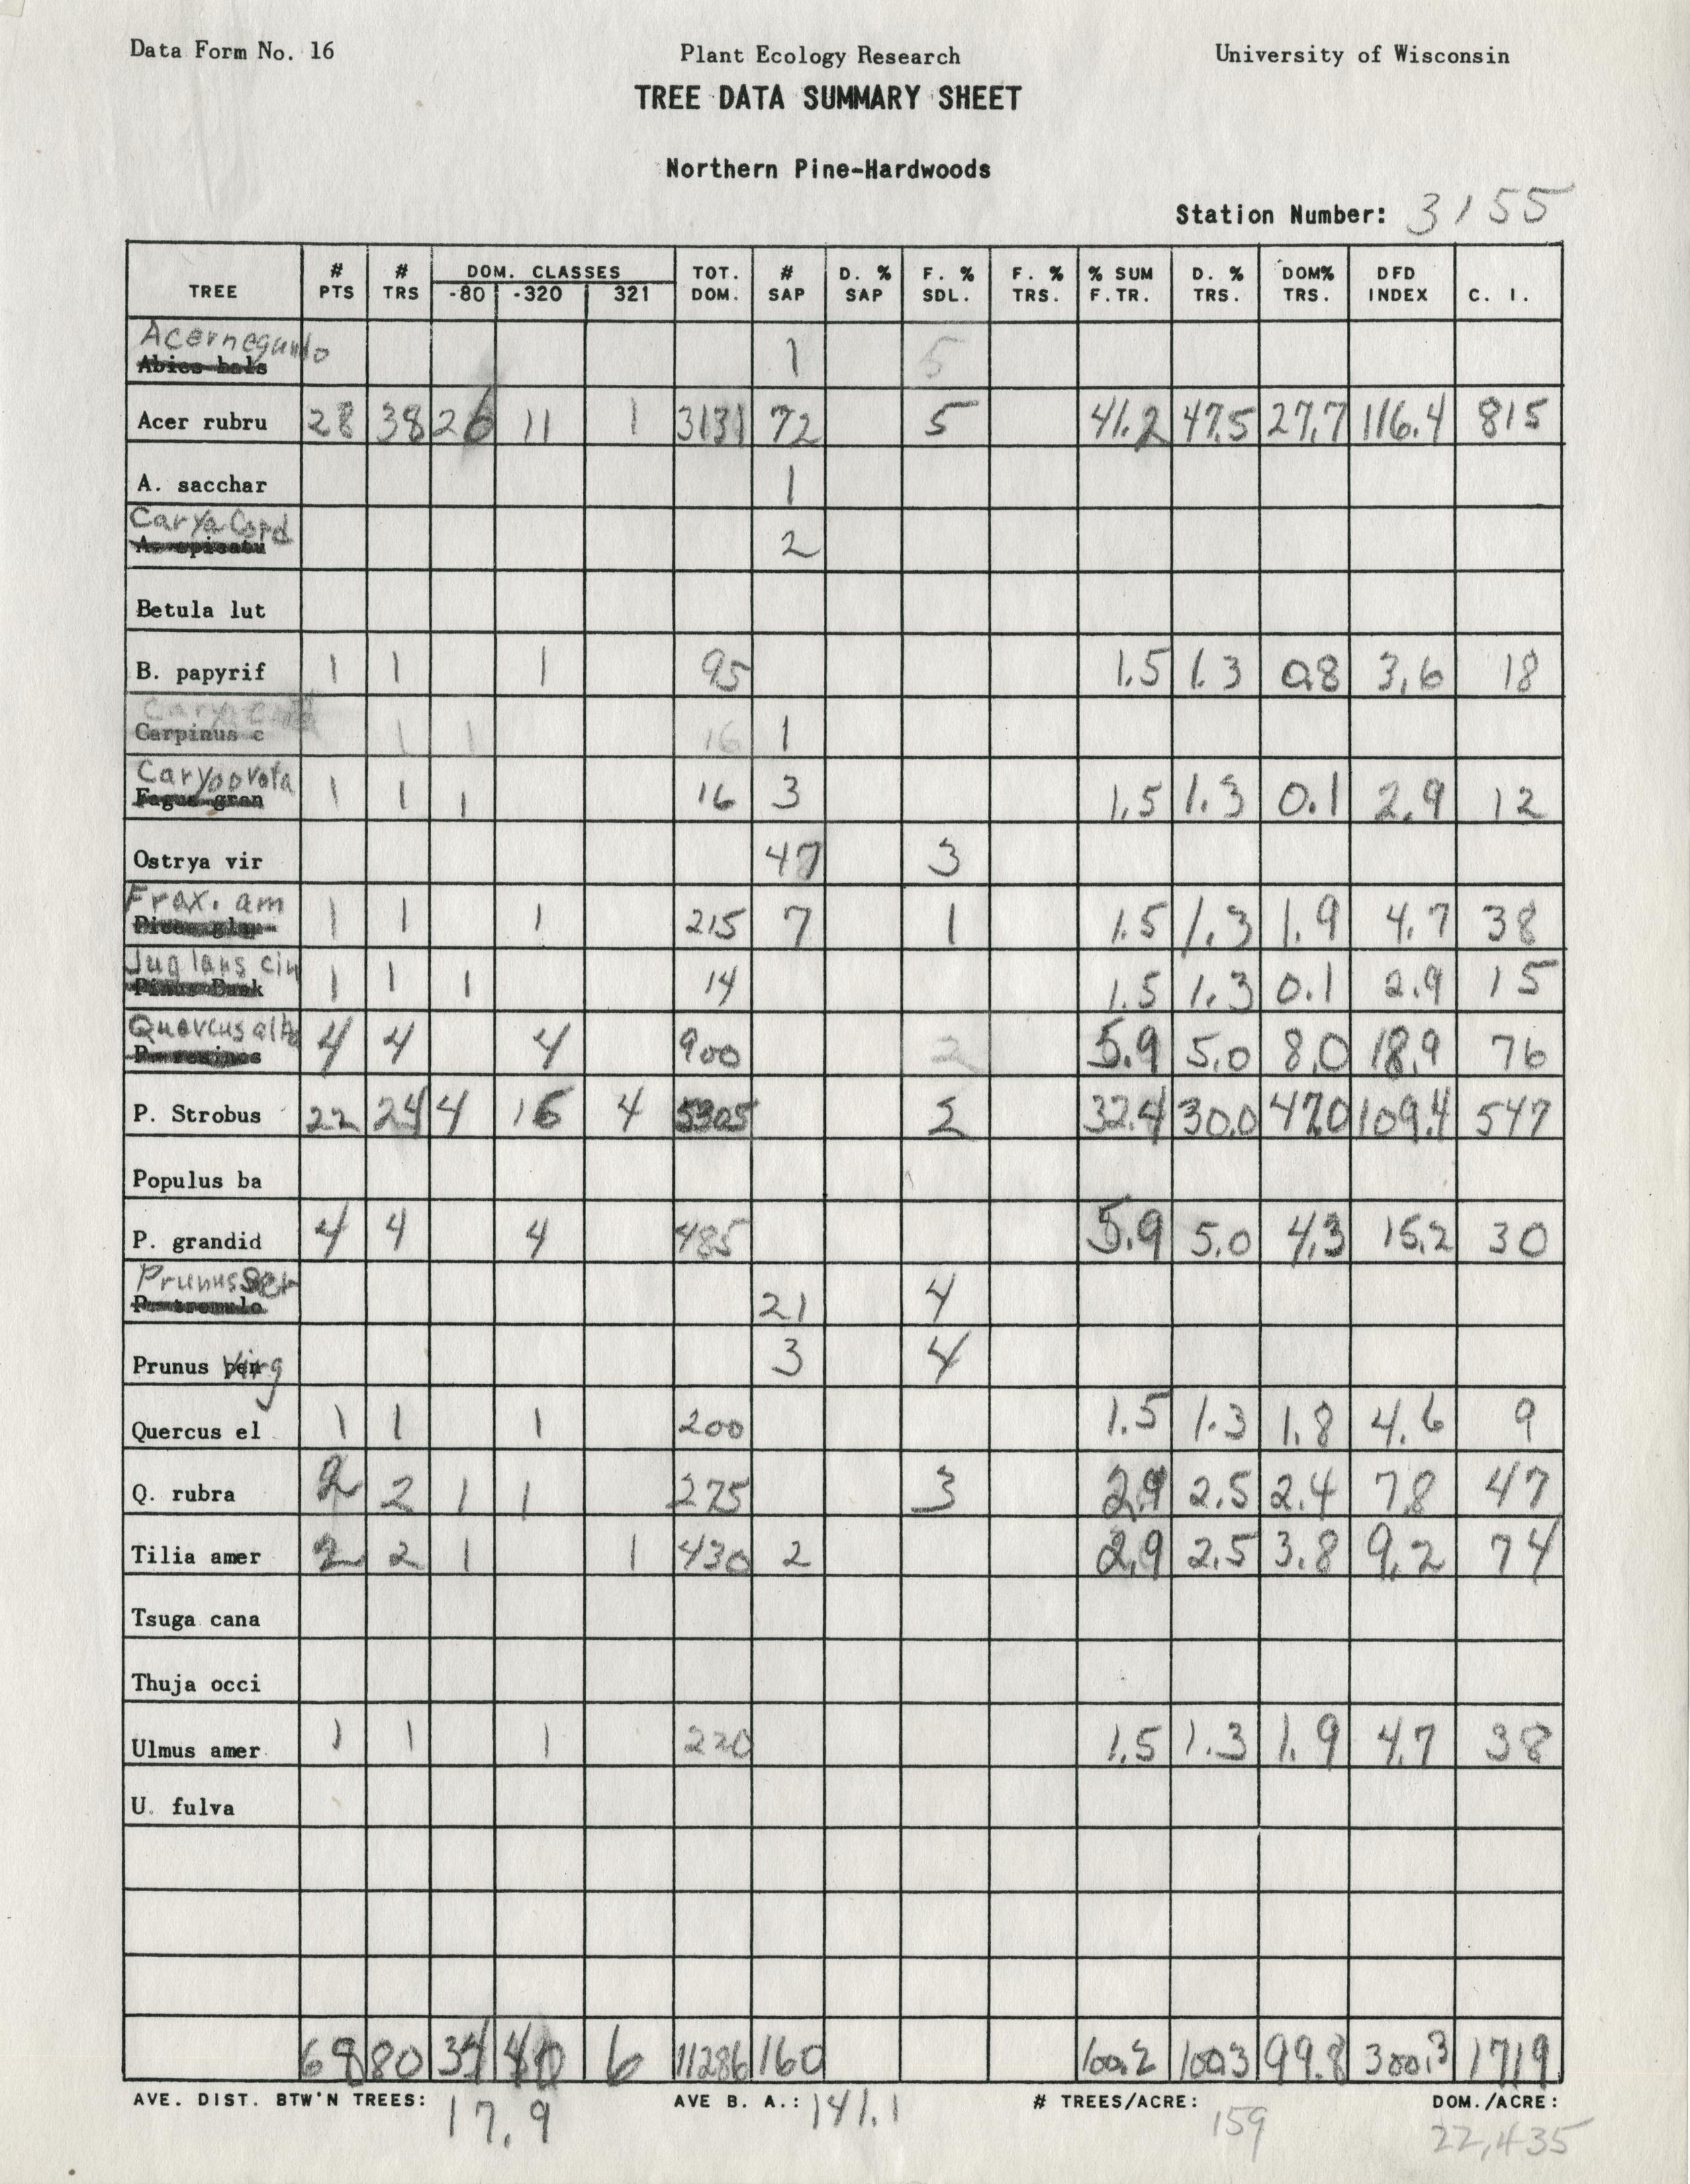 Data Form No. 16 Plant Ecology Research University of Wisconsin
TREE DATA SUMMARY SHEET
Northern Pine-Hardwoods
Station Number: 3155
TREE # PTS # TRS DOM. CLASSES -80 -320 321 TOT. DOM. # SAP D. % SAP F. % SDL. F. % TRS. % SUM F. TR. D. % TRS. DOM% TRS. DFD INDEX C. I.
Acer negundo 1 5
Abies bals
Acer rubru 28 38 26 11 1 3131 72 5 41.2 47.5 27.7 116.4 815
A. sacchar 1
Carya Cord 2
A. spicatu
Betula lut
B. papyrif 1 1 1 95 1.5 1.3 0.8 3.6 18
Carya Cord
Carpinus c 1 1 16 1
Carya ovata 1 1 1 16 3 1.5 1.3 0.1 2.9 12
Fagus gran
Ostrya vir 47 3
Frax. am 1 1 1 215 7 1 1.5 1.3 1.9 4.7 38
Picea glau
Juglans cin 1 1 1 14 1.5 1.3 0.1 2.9 15
Pinus Bank
Quercus alba 4 4 4 900 2 5.9 5.0 8.0 18.9 76
P. resinos
P. Strobus 22 24 4 16 4 5305 2 32.4 30.0 47.0 109.4 547
Populus ba
P. grandid 4 4 4 485 5.9 5.0 4.3 15.2 30
Prunus Ser 21 4
P. tremulo
Prunus pen Virg 3 4
Quercus el 1 1 1 200 1.5 1.3 1.8 4.6 9
Q. rubra 2 2 1 1 275 3 2.9 2.5 2.4 7.8 47
Tilia amer 2 2 1 1 430 2 2.9 2.5 3.8 9.2 74
Tsuga cana
Thuja occi
Ulmus amer 1 1 1 220 1.5 1.3 1.9 4.7 38
U. fulva
68 80 34 40 6 11286 160 100.2 100.3 99.8 300.3 1719
AVE. DIST. BTW'N TREES: 17.9 AVE B. A.: 141.1 # TREES/ACRE: 159 DOM./ACRE: 22,435